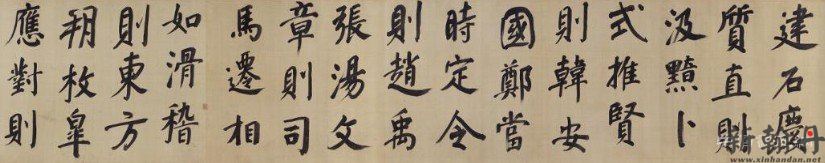 建石慶
質直則
汲黯卜
式推賢
則韓安
國鄭當
時定令
則趙禹
張湯文
章則司
馬遷相
如滑稽
則東方
朔枚皐
應對則
www.xinhandan.net